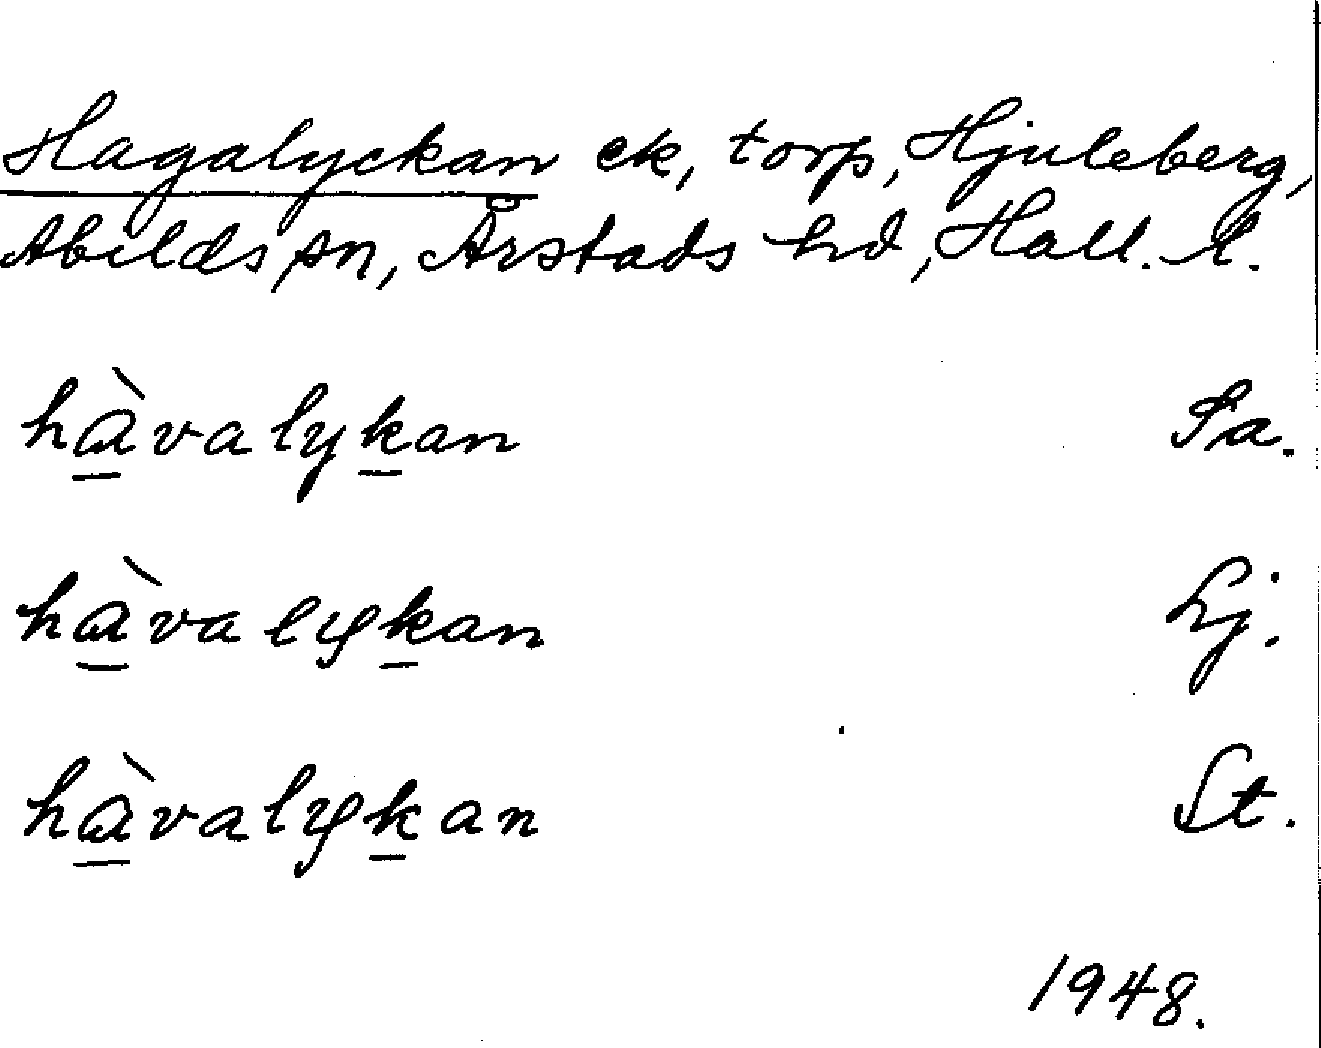 Hagalyckan ek, torp, Hjuleberg,
Abilds sn, Årstads hd, Hall. l.
hàvalykan Sa.
hàvalykan Lj.
hàvalykan St.
1948.